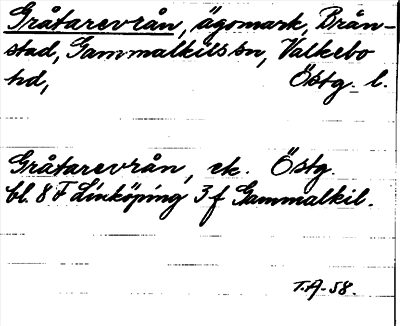 Gråtarevrån, ägomark, Brån-
stad, Gammalkils sn, Valkebo
hd, Östg. l.
Gråtarevrån, ek. Östg.
bl. 8 F Linköping 3 f Gammalkil.
T.A. 58.